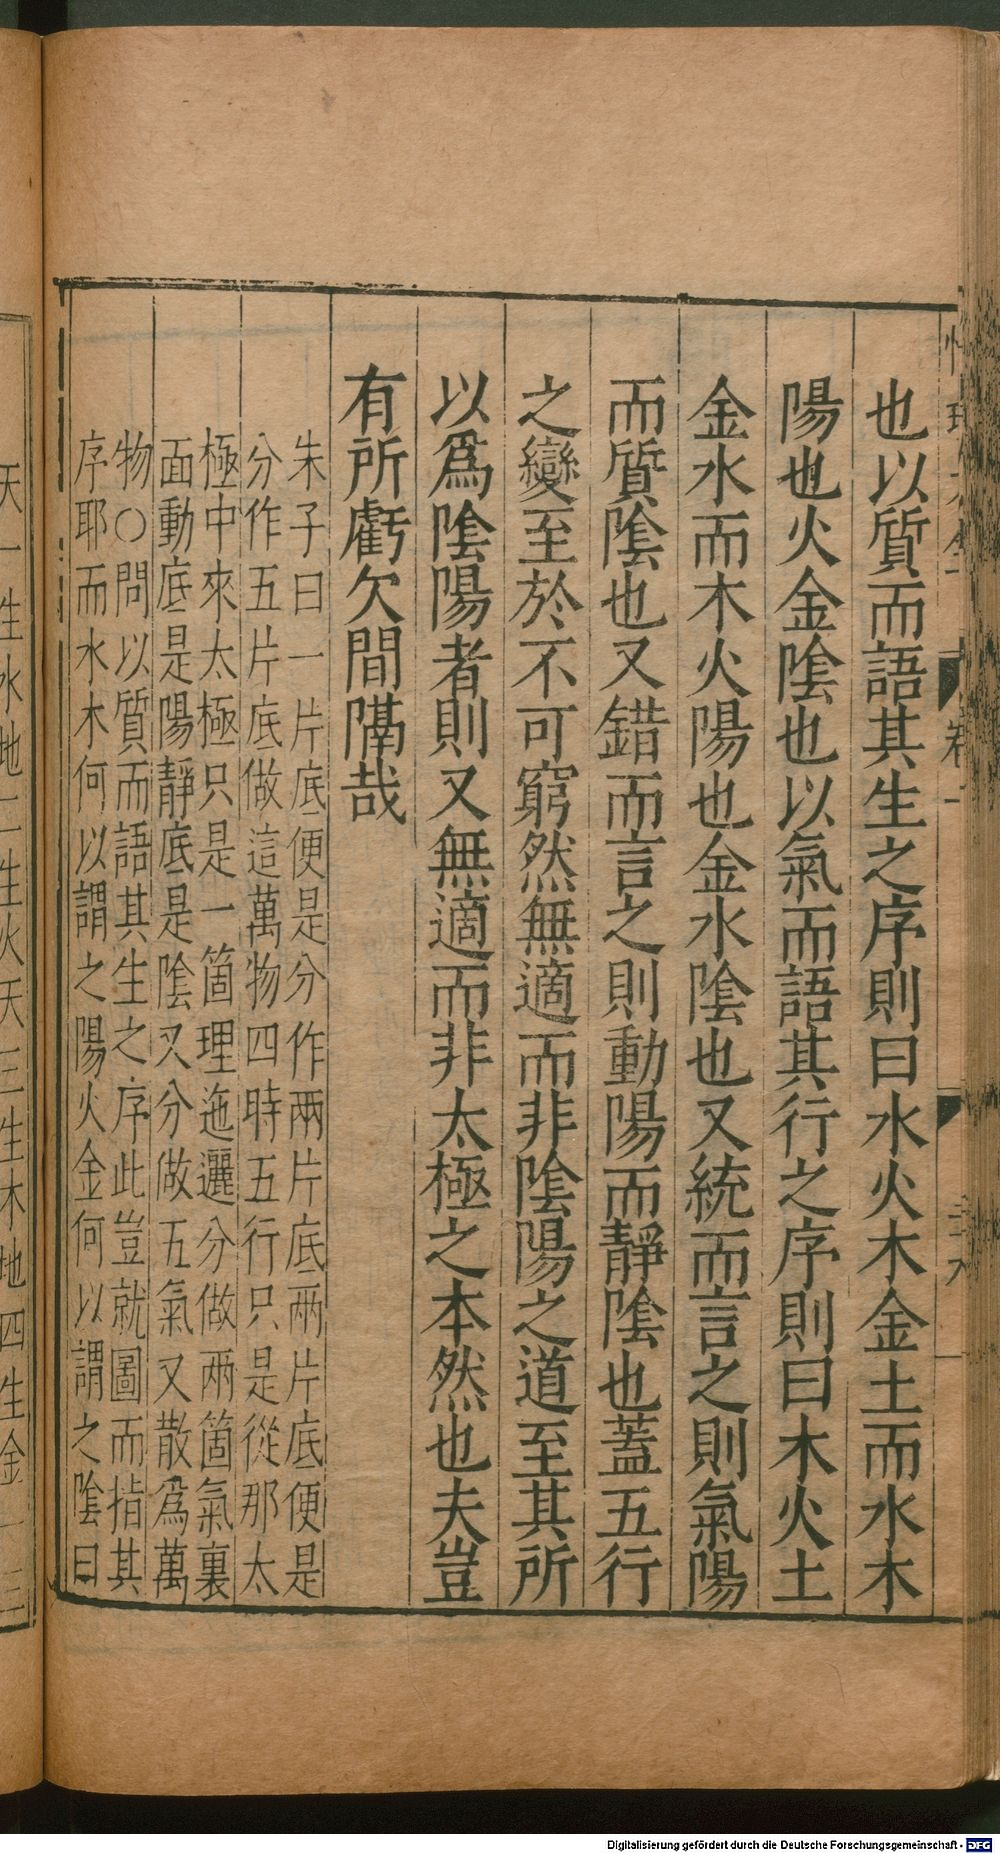 也以質而語其生之序則曰水火木金土而水木
陽也火金陰也以氣而語其行之序則曰木火土
金水而木火陽也金水陰也又統而言之則氣陽
而質陰也又錯而言之則動陽而靜陰也蓋五行
之變至於不可窮然無適而非陰陽之道至其所
以爲陰陽者則又無適而非太極之本然也夫豈
有所虧欠間隔哉
朱子曰一片底便是分作兩片底兩片底便是
分作五片底做這萬物四時五行只是從那太
極中來太極只是一箇理迤邐分做兩箇氣裏
面動底是陽靜底是陰又分做五氣又散爲萬
物○問以質而語其生之序此豈就圖而指其
序耶而水木何以謂之陽火金何以謂之陰曰
天一生水地二生火天三生木地四生金
卷一
Digitalisierung gefördert durch die Deutsche Forschungsgemeinschaft - DFG